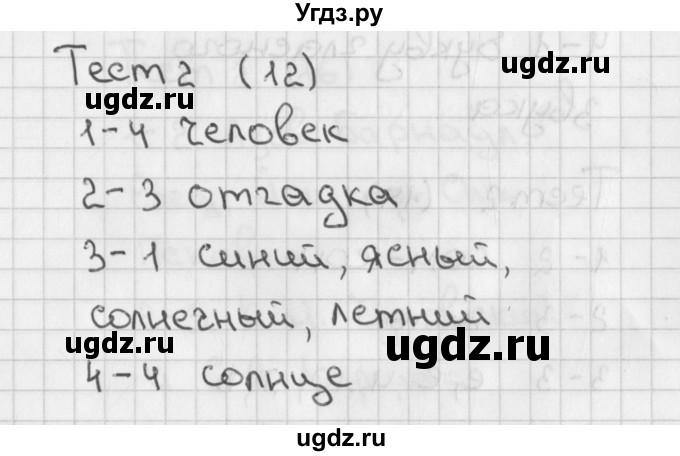 Угдз.ру
Тест 2 (12)
ugdz.ru
ugdz.ru
1-4 человек
2-3 отгадка
3-1 синий, ясный,
солнечный, летний
ugdz.ru
ugdz.ru
ugdz.ru
4-4 солнце
ugdz.ru